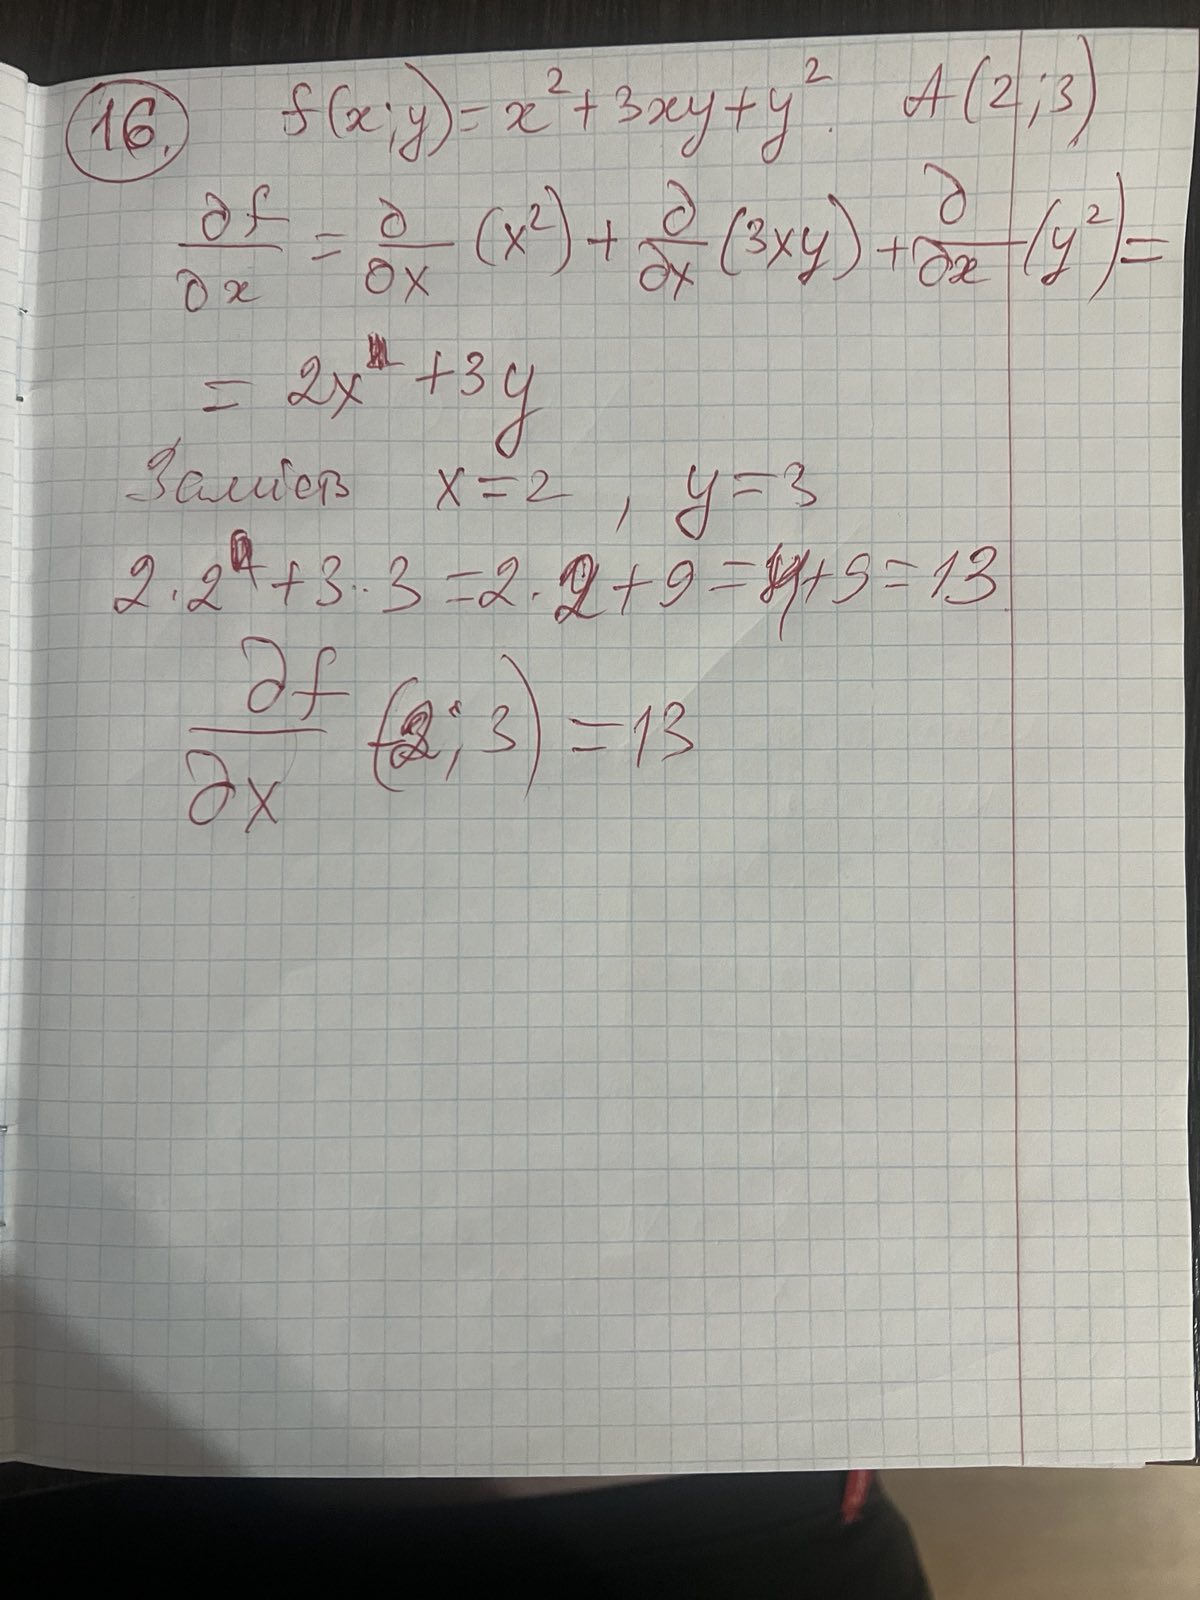 16. f(x;y)=x²+3xy+y². A(2;3)
∂f/∂x = ∂/∂x (x²) + ∂/∂x (3xy) + ∂/∂x (y²) =
= 2x¹ + 3y
x=2, y=3
2·2¹+3·3=2·2+9=4+9=13
∂f/∂x (2;3)=13